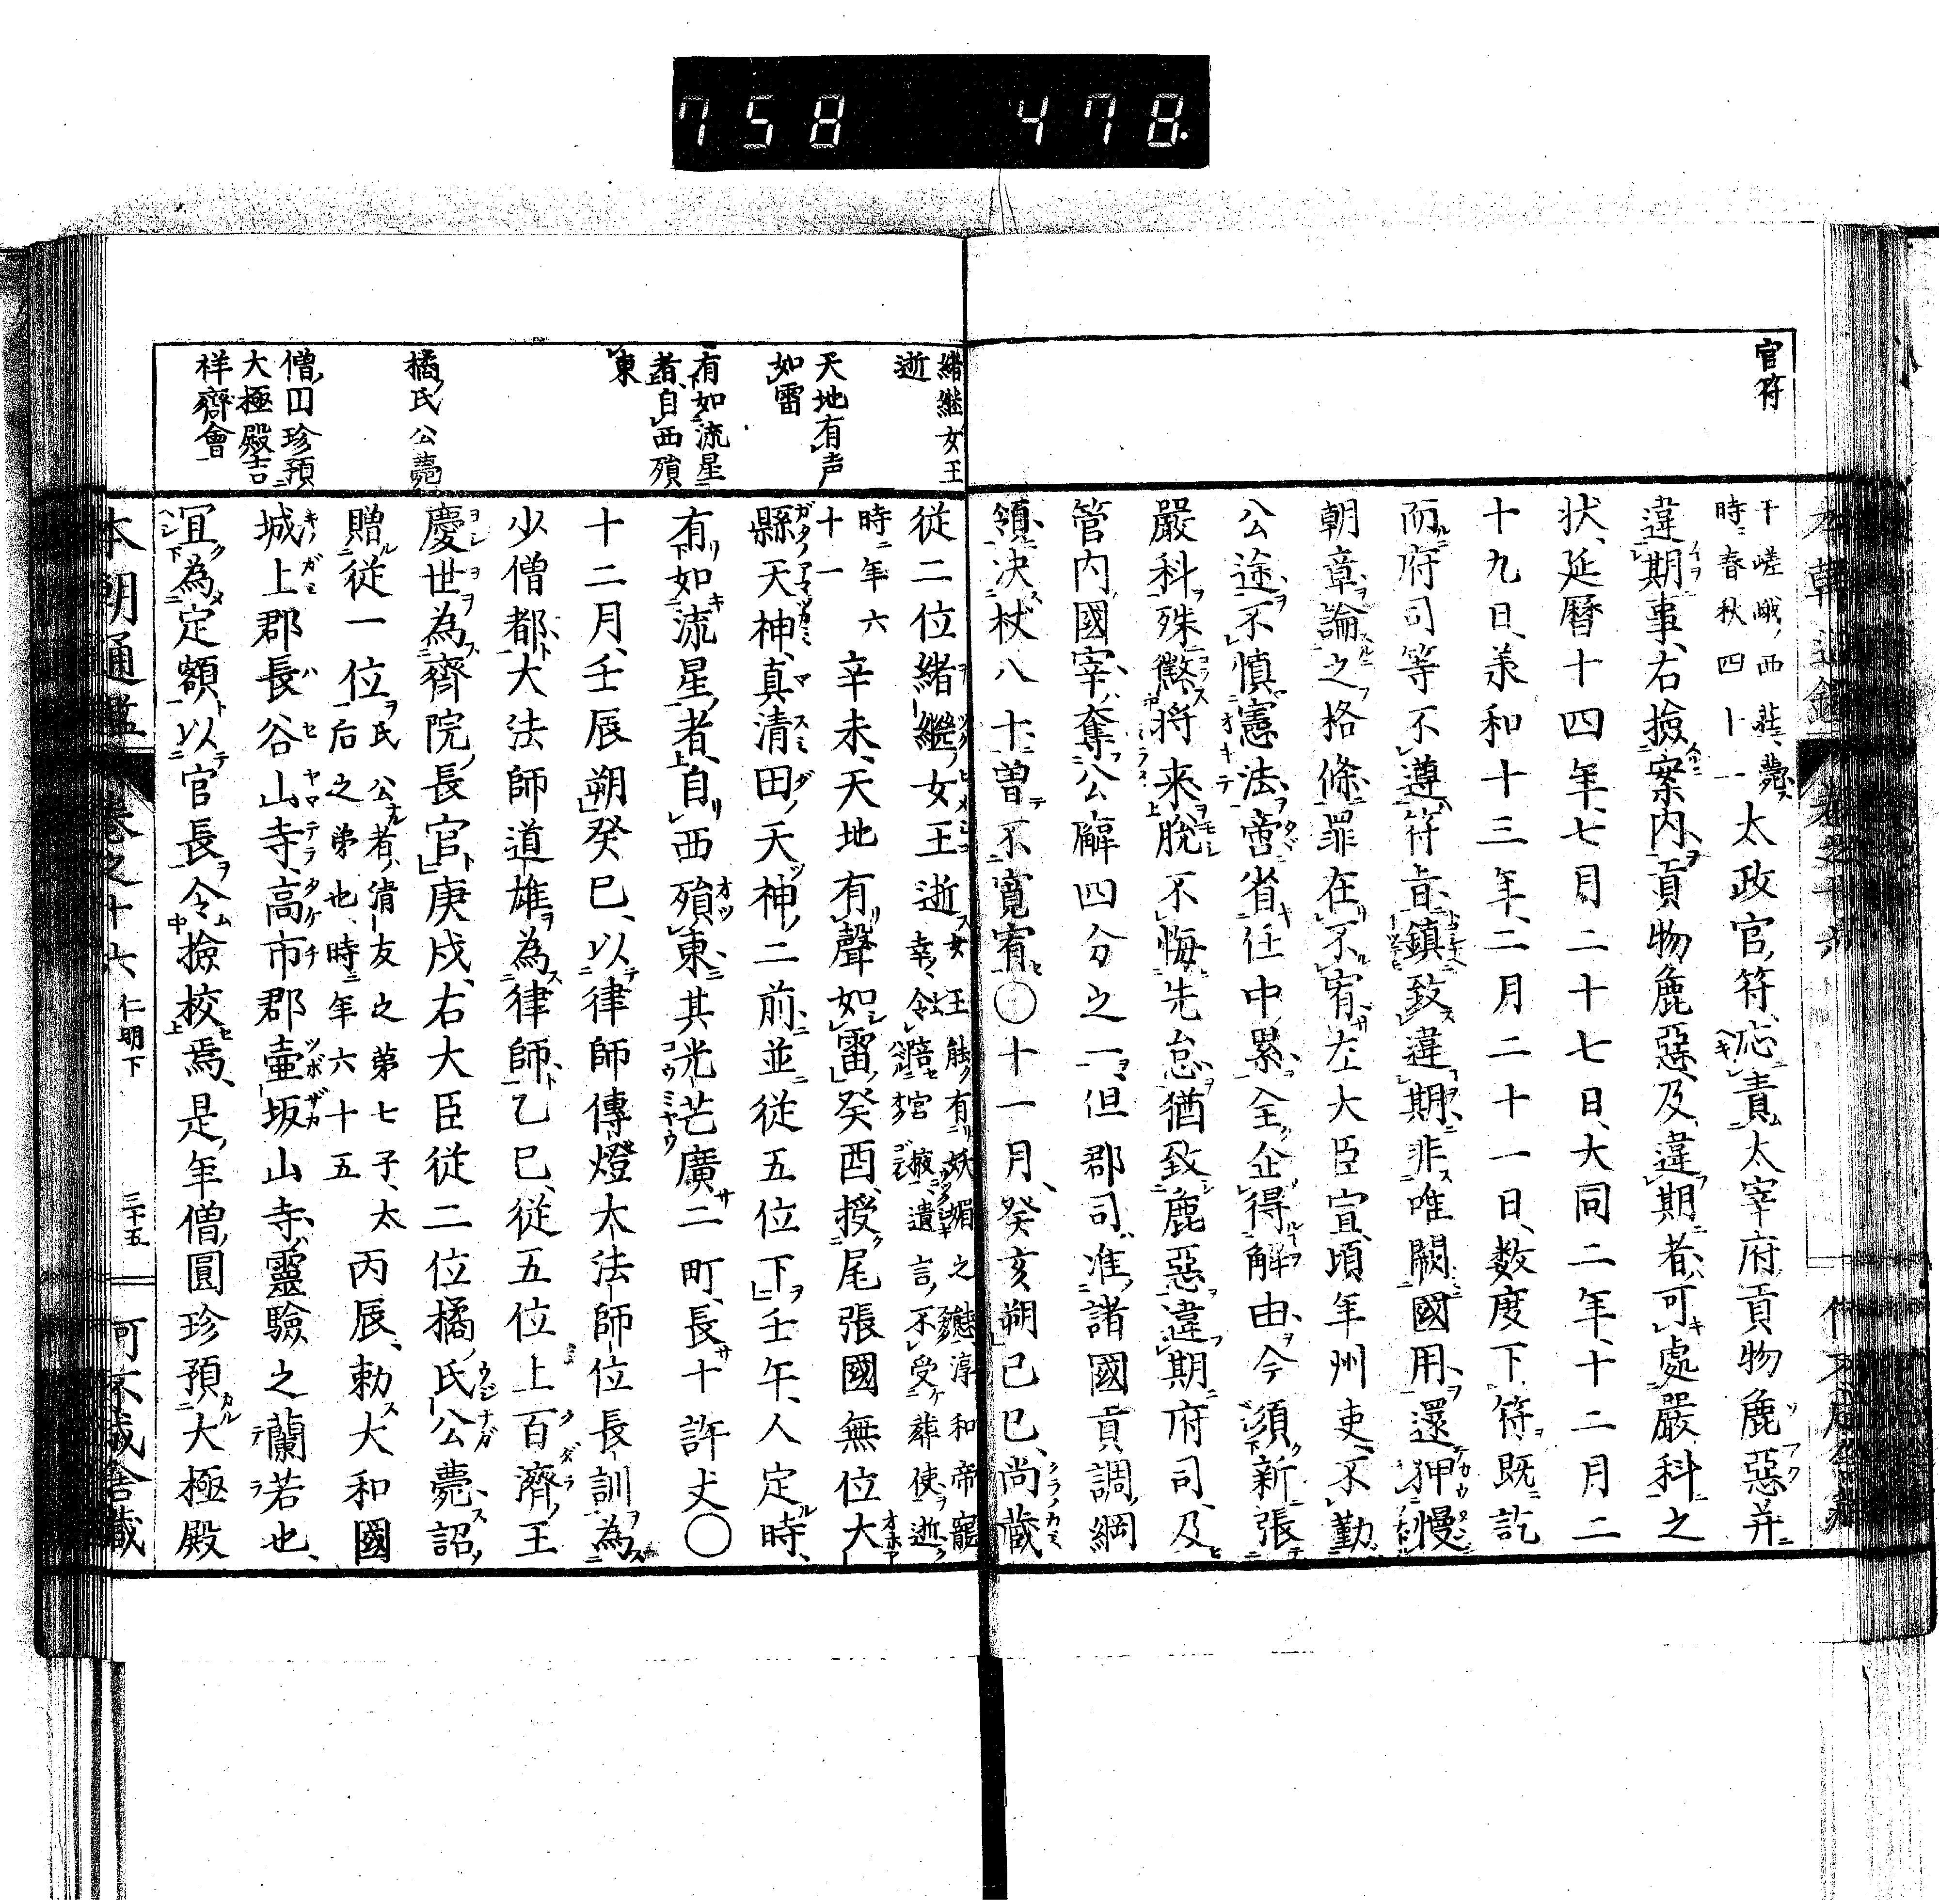 758 478.
官符
于嵯峨西莊薨
時春秋四十一
太政官符応責太宰府貢物麁惡并
違期事右撿案内貢物麁惡及違期者可處嚴科之
状延曆十四年七月二十七日大同二年十二月二
十九日承和十三年二月二十一日数度下符既訖
而府司等不遵符旨鎮致違期非唯闕國用還狎慢
朝章論之格條罪在不宥左大臣宣頃年州吏不勤
公途不慎憲法啻省任中累全企得解由今須新張
嚴科殊懲将来脫不悔先怠猶致麁惡違期府司及
管内國宰奪公廨四分之一但郡司准諸國貢調綱
領决杖八十曽不寛宥○十一月癸亥朔己巳尚藏
緒継女王
逝
天地有声
如雷
有如流星
者自西殞
東
橘氏公薨
僧円珍預
大極殿吉
祥齋會
従二位緒継女王逝
女王能有妖媚之徳淳和帝寵
幸令陪宮掖遺言不受葬使逝
時年六
十一
辛未天地有聲如雷癸酉授尾張國無位大
縣天神真清田天神二前並従五位下壬午人定時
有如流星者自西殞東其光芒廣二町長十許丈○
十二月壬辰朔癸巳以律師傳燈大法師位長訓為
少僧都大法師道雄為律師乙巳従五位上百濟王
慶世為齊院長官庚戌右大臣従二位橘氏公薨詔
贈従一位
氏公者清友之第七子太
后之弟也時年六十五
丙辰勅大和國
城上郡長谷山寺高市郡壷坂山寺靈驗之蘭若也
冝為定額以官長令撿校焉是年僧圓珍預大極殿
本朝通鑑 卷之十六 仁明下 三十五